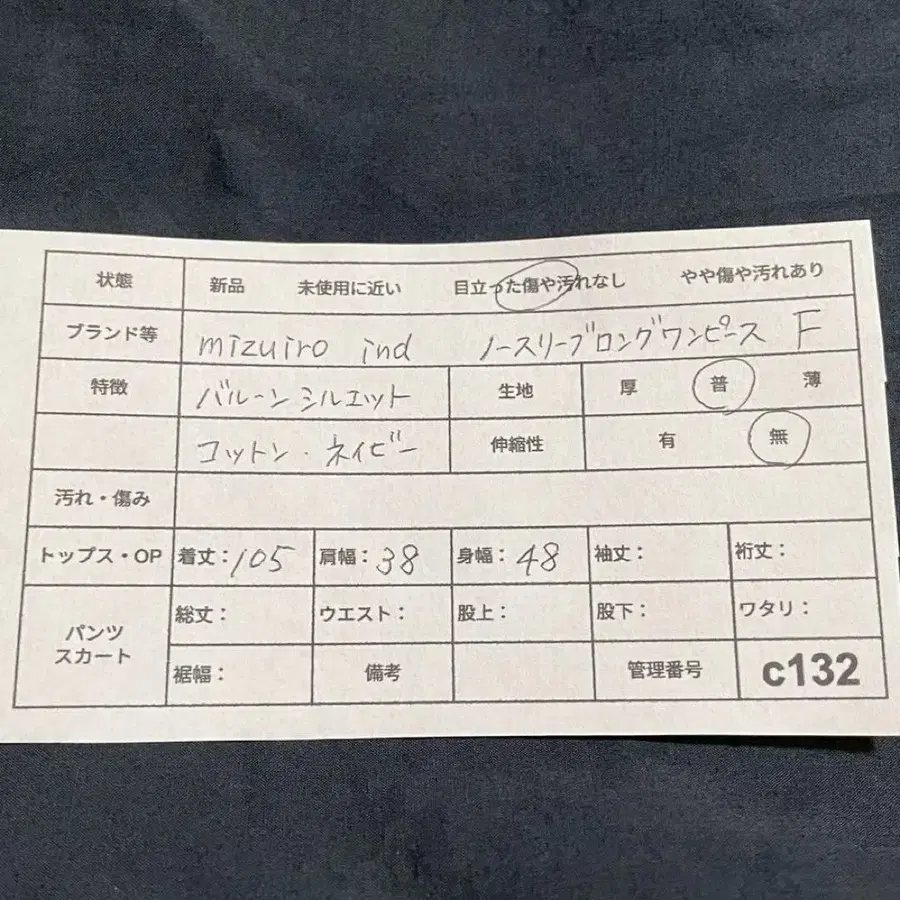 状態 新品 未使用に近い 目立った傷や汚れなし やや傷や汚れあり
ブランド等 mizuiro ind ノースリーブロングワンピース F
特徴 バルーンシルエット 生地 厚 普 薄
コットン・ネイビー 伸縮性 有 無
汚れ・傷み
トップス・OP 着丈：105 肩幅：38 身幅：48 袖丈： 裄丈：
パンツ スカート 総丈： ウエスト： 股上： 股下： ワタリ：
裾幅： 備考 管理番号 c132